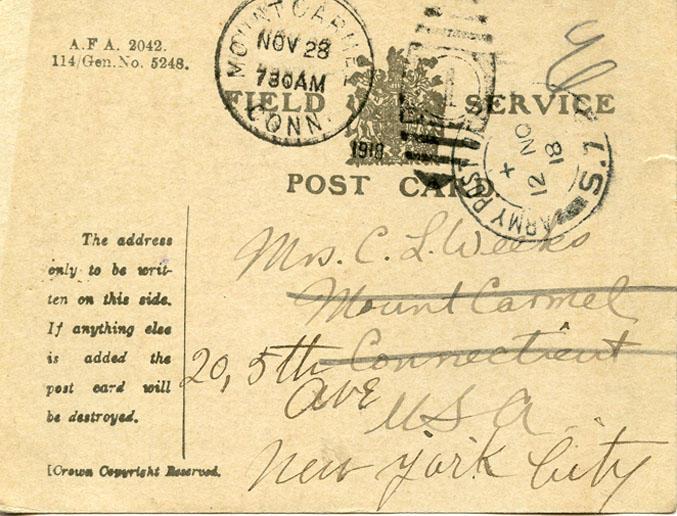 A.F A. 2042.
114/Gen.No. 5248.
MOUNT CARMEL
NOV 28
730AM
CONN.
1918
FIELD SERVICE
POST CARD
ARMY POST
S.7
12 NO
18
The address
only to be writ-
ten on this side.
If anything else
is added the
post card will
be destroyed.
[Crown Copyright Reserved.
Mrs. C. L. Weeks
Mount Carmel
Connecticut
20, 5th
Ave
USA
New York City